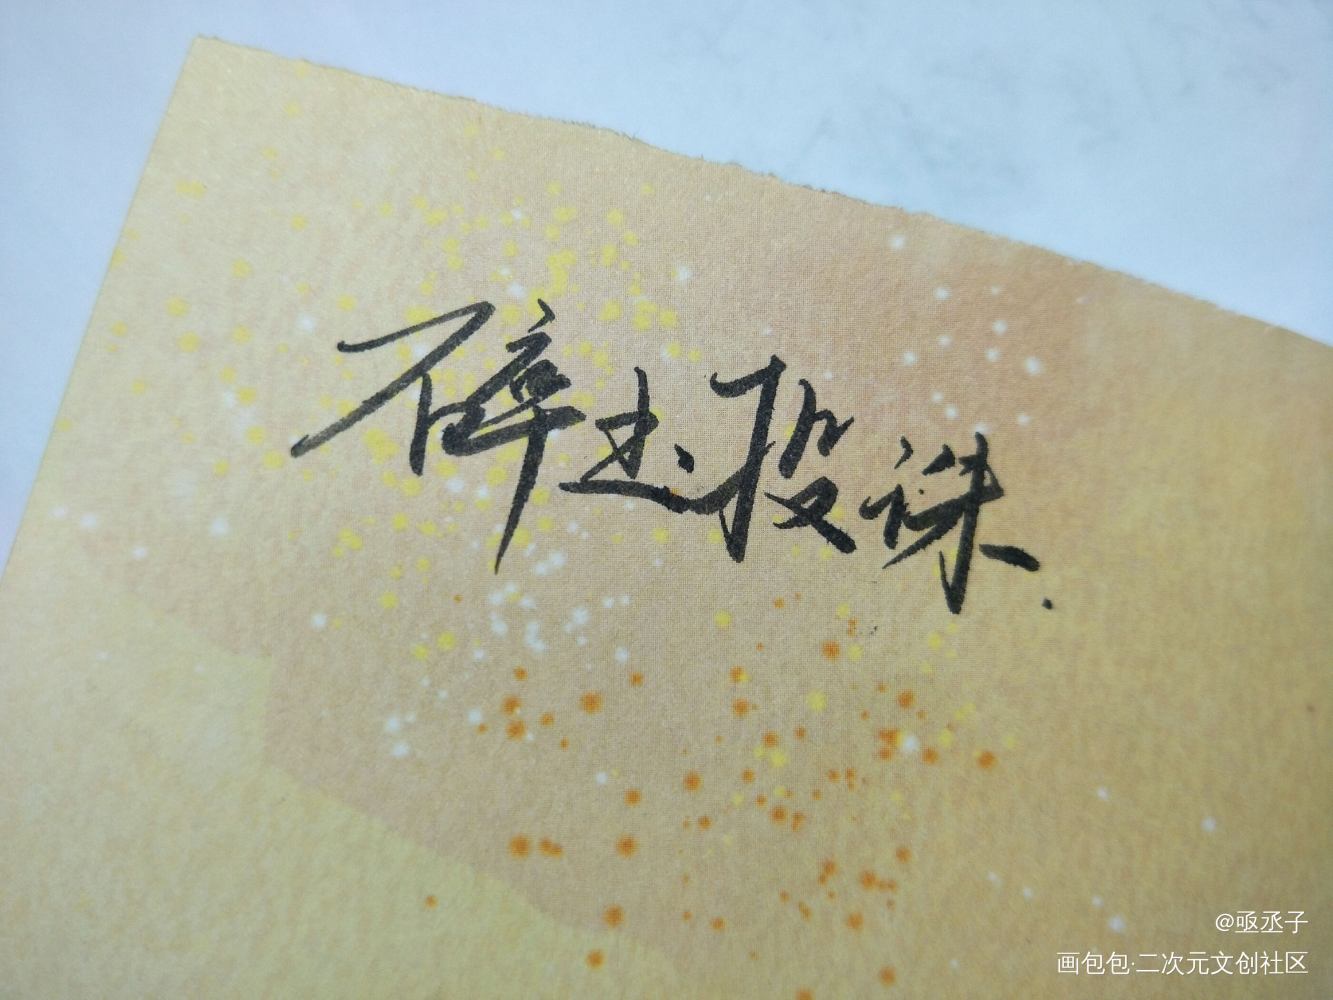 碎玉投珠.
@亟丞子
画包包·二次元文创社区